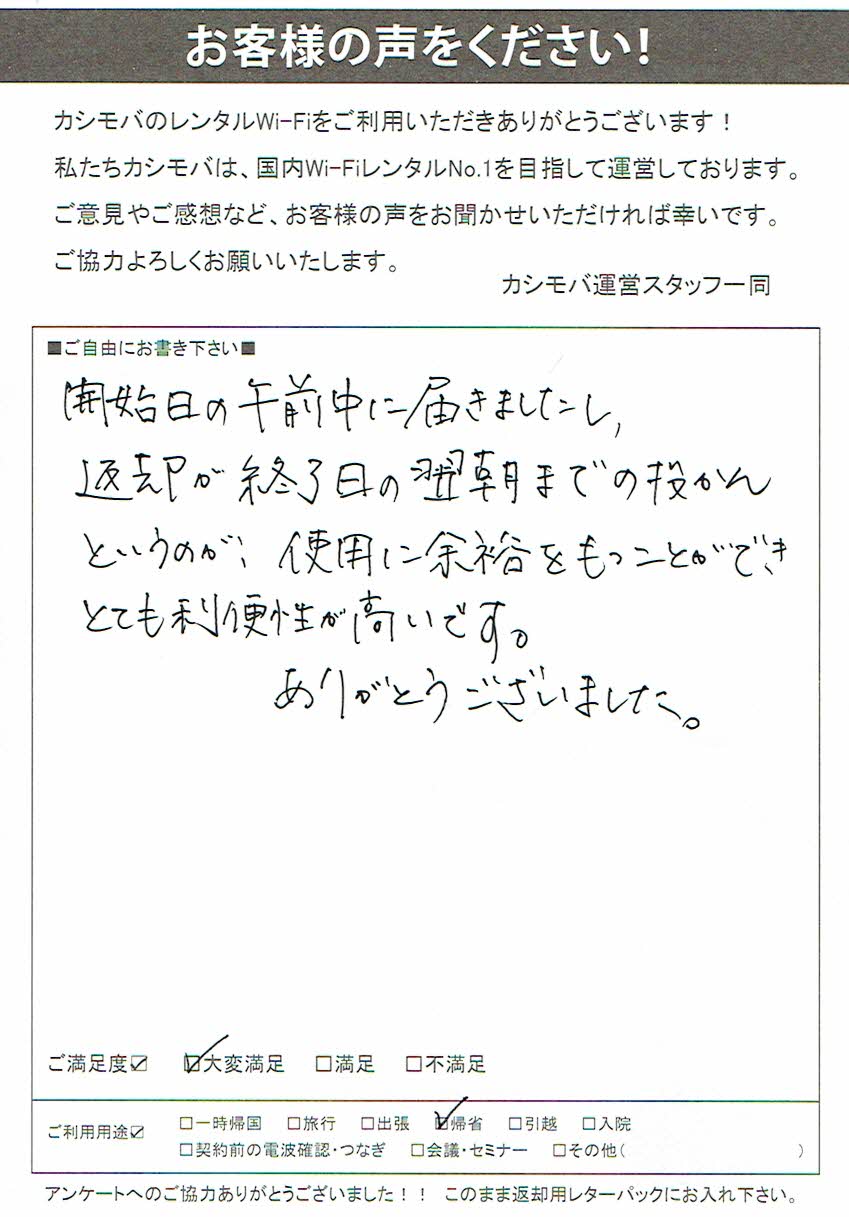 お客様の声をください!
カシモバのレンタルWi-Fiをご利用いただきありがとうございます！
私たちカシモバは、国内Wi-FiレンタルNo.1を目指して運営しております。
ご意見やご感想など、お客様の声をお聞かせいただければ幸いです。
ご協力よろしくお願いいたします。
カシモバ運営スタッフ一同
■ご自由にお書き下さい■
開始日の午前中に届きましたし,
返却が終了日の翌朝までの投かん
というのが、使用に余裕をもつことができ
とても利便性が高いです。
ありがとうございました。
ご満足度☑ ☑大変満足 □満足 □不満足
ご利用用途☑ □一時帰国 □旅行 □出張 ☑帰省 □引越 □入院
□契約前の電波確認・つなぎ □会議・セミナー □その他( )
アンケートへのご協力ありがとうございました！！ このまま返却用レターパックにお入れ下さい。